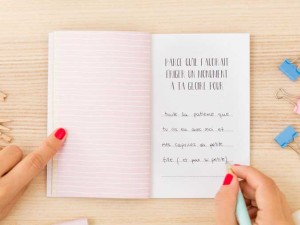 PARCE QU'IL FAUDRAIT
ÉRIGER UN MONUMENT
À TA GLOIRE POUR
toute la patience que
tu as eu avec moi et
mes caprices de petite
fille (et pas si petite)